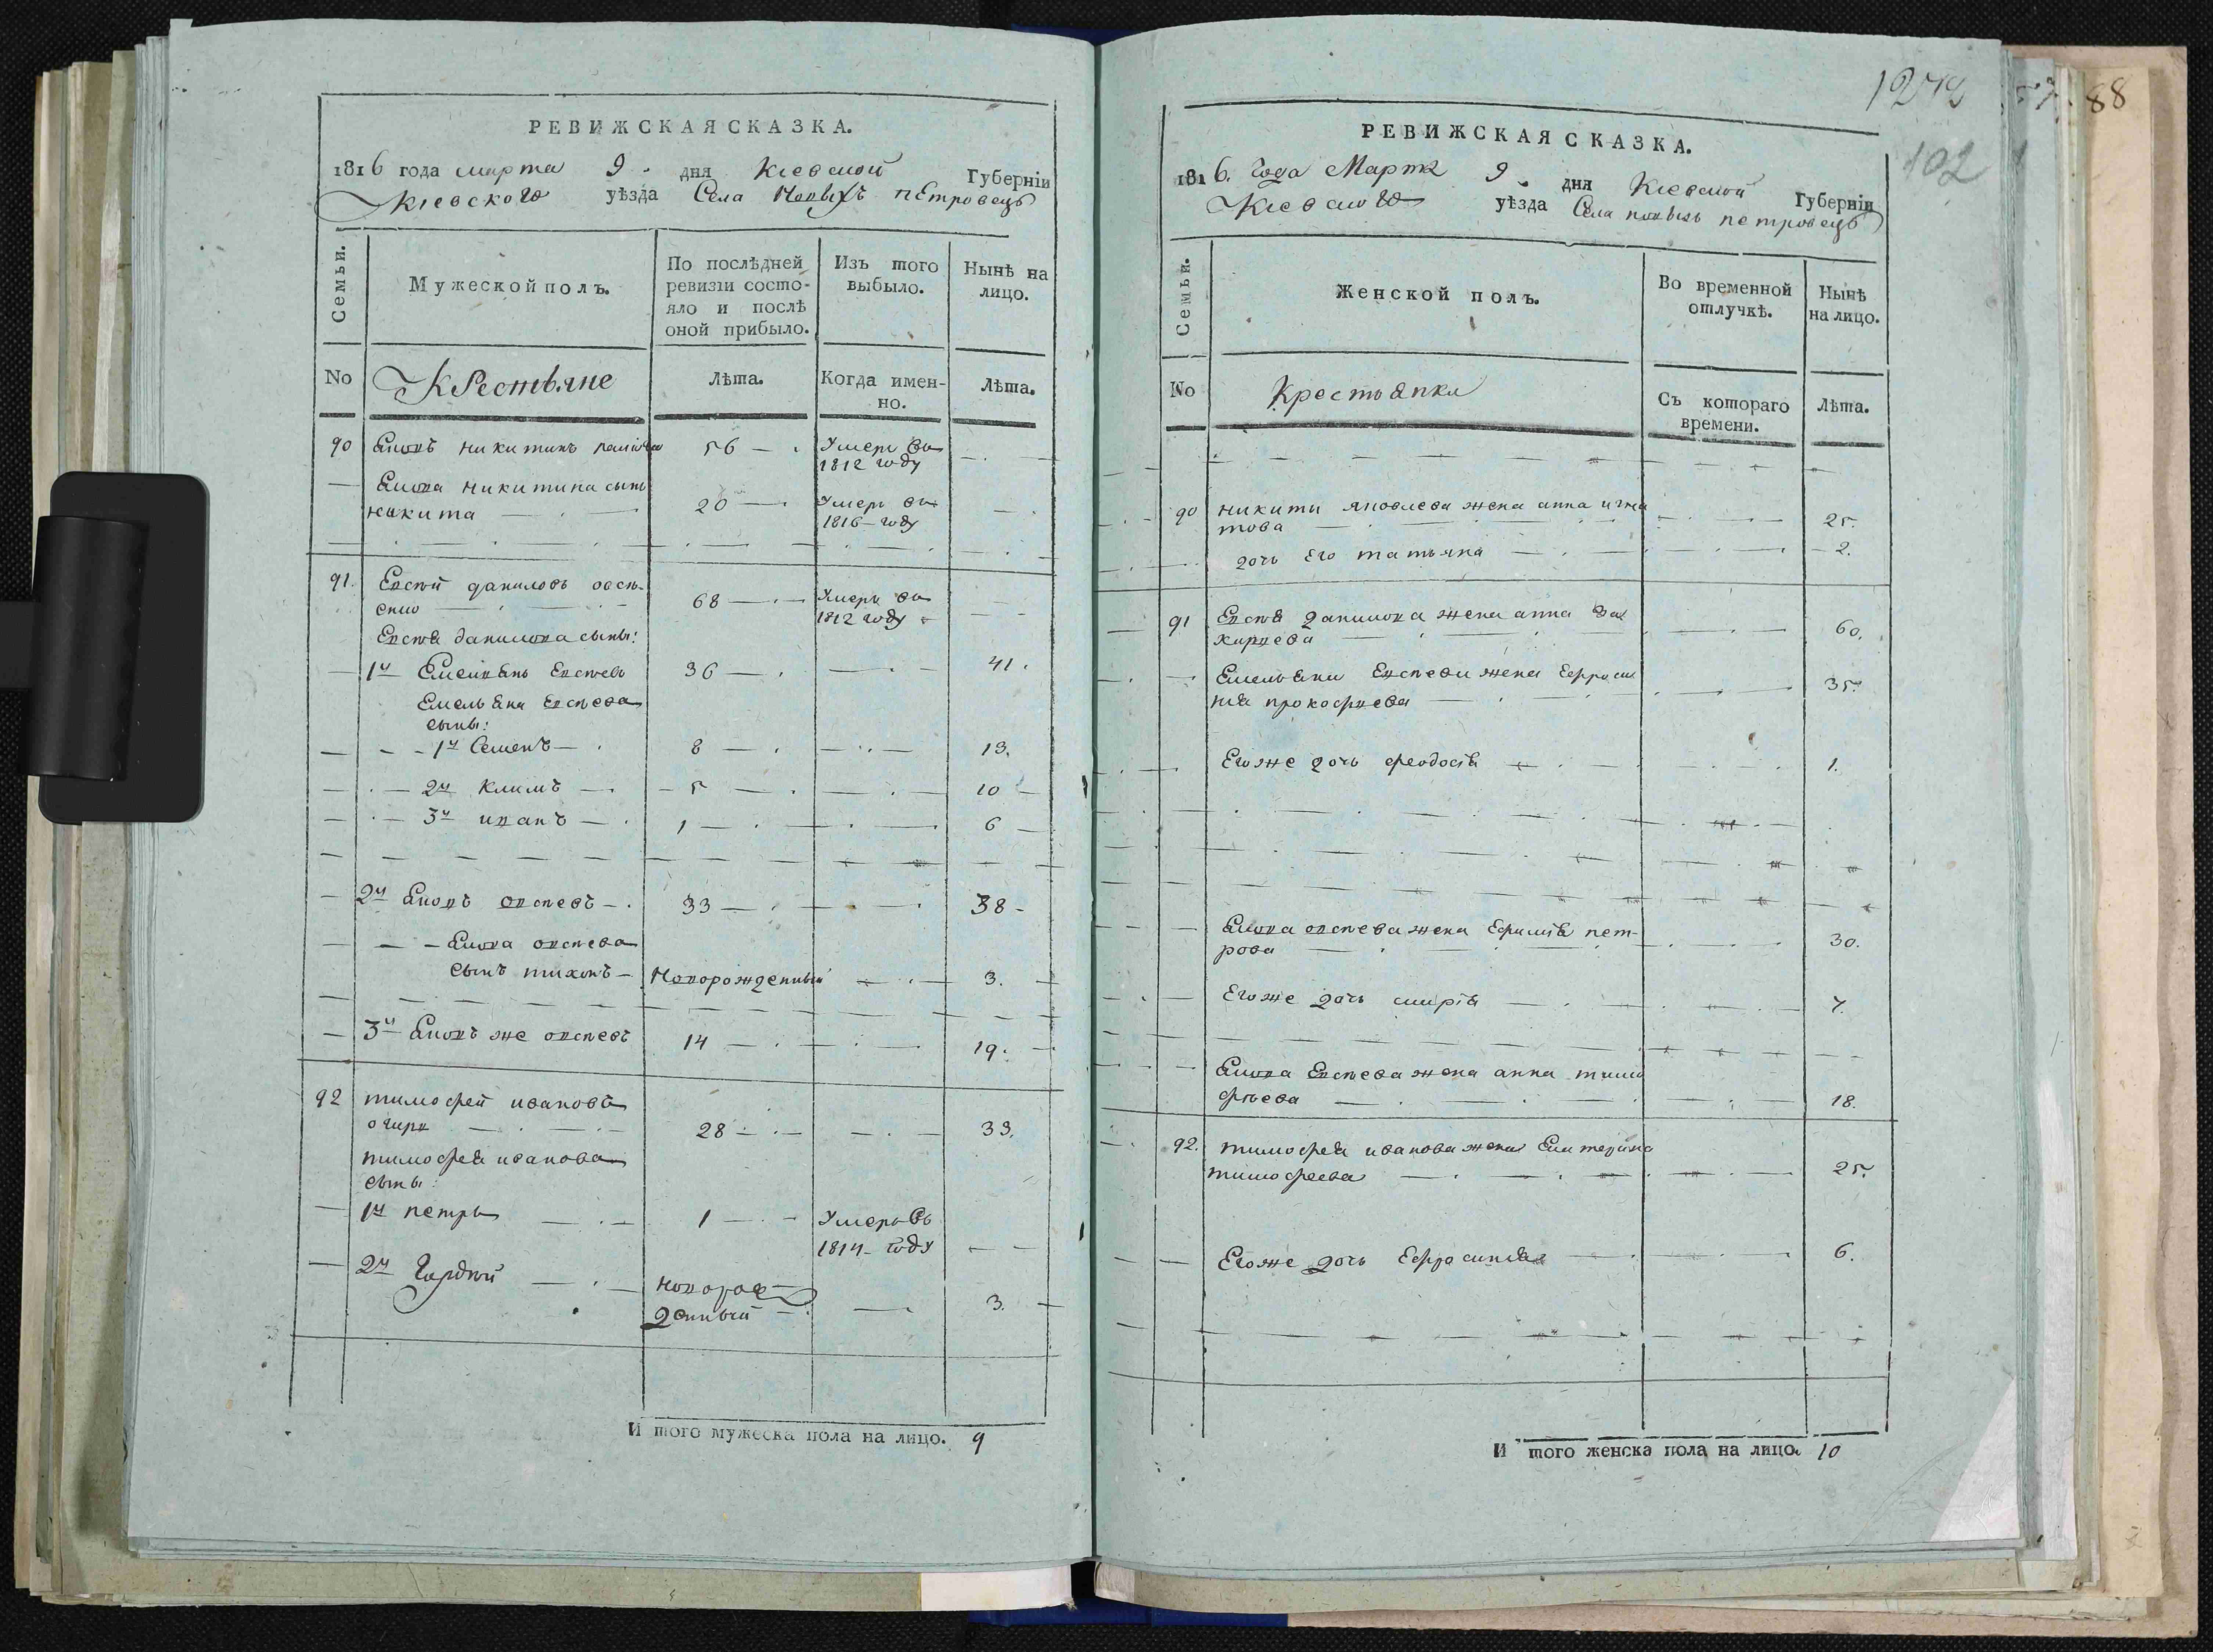 РЕВИЖСКАЯ СКАЗКА.
1816 года марта 9. дня Кіевской Губерніи
Кіевского уѣзда Села Новыхъ петровецъ
Семьи.
Мужеской полъ.
По послѣдней
ревизіи состо-
яло и послѣ
оной прибыло.
Изъ того
выбыло.
Нынѣ на
лицо.
No Крестьяне Лѣта. Когда имен-
но.
Лѣта.
90 Яковъ никитинъ 56 Умеръ въ
1812 году
Якова никитина сынъ
никита 20 Умеръ въ
1816 году
91. Евсѣй даниловъ
68 Умеръ въ
1812 году
Евсѣя данилова сыны:
1й Емельянъ Евсѣевъ 36 41.
Емельяна Евсѣева
сыны:
1й Семенъ 8 13.
2й Климъ 5 10
3й иванъ 1 6
2й Яковъ евсѣевъ 33 38
Якова евсѣева
сынъ тихонъ Новорожденный 3.
3й Яковъ же евсѣевъ 14 19.
92 тимофей ивановъ
28 33.
тимофея иванова
сыны:
1й петръ 1 Умеръ въ
1814 году
2й Гордѣй новорож
денный 3.
И того мужеска пола на лицо. 9
127 88
102
РЕВИЖСКАЯ СКАЗКА.
1816. Года Марта 9 дня Кіевской Губерніи
Кіевского уѣзда Села новыхъ петровецъ
Семьи.
Женской полъ.
Во временной
отлучкѣ.
Нынѣ
на лицо.
No Крестьянки Съ котораго
времени.
Лѣта.
90 никиты яковлева жена анна игна
това 25.
дочь Его татьяна 2.
91 Евсѣя данилова жена анна За
харьева 60.
Емельяна Евсѣева жена Ефроси
нія прокофьева 35.
Егоже дочь феодосія 1.
Якова евсѣева жена Ефимія пет-
рова 30.
Егоже дочь 7.
Якова Евсѣева жена анна тимо
фѣева 18.
92. тимофея иванова жена Екатерина
тимофеева 25.
Егоже дочь Ефросинія 6.
И того женска пола на лицо. 10